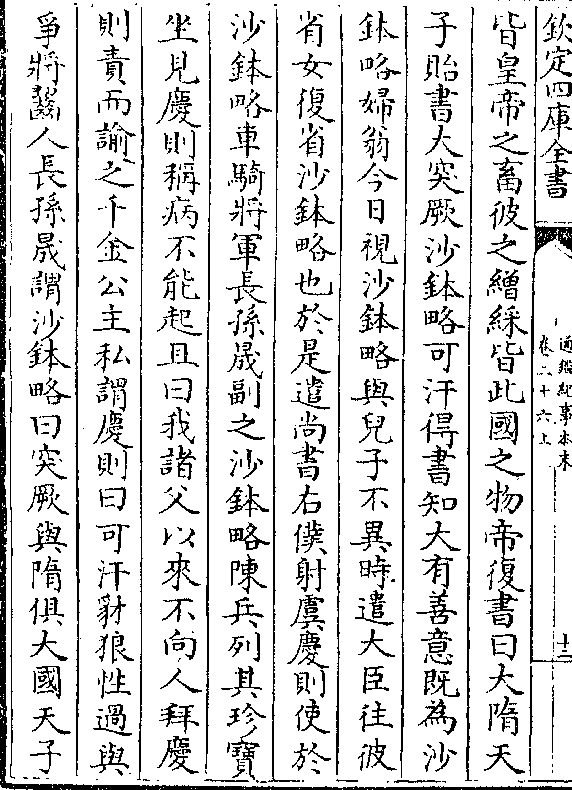 欽定四庫全書
通鑑紀事本末
卷二十六上
十三
皆皇帝之畜彼之繒綵皆此國之物帝復書曰大隋天
子貽書大突厥沙鉢略可汗得書知大有善意既為沙
鉢略婦翁今日視沙鉢略與兒子不異時遣大臣往彼
省女復省沙鉢略也於是遣尚書右僕射虞慶則使於
沙鉢略車騎將軍長孫晟副之沙鉢略陳兵列其珍寶
坐見慶則稱病不能起且曰我諸父以來不向人拜慶
則責而諭之千金公主私謂慶則曰可汗豺狼性過與
爭將齧人長孫晟謂沙鉢略曰突厥與隋俱大國天子